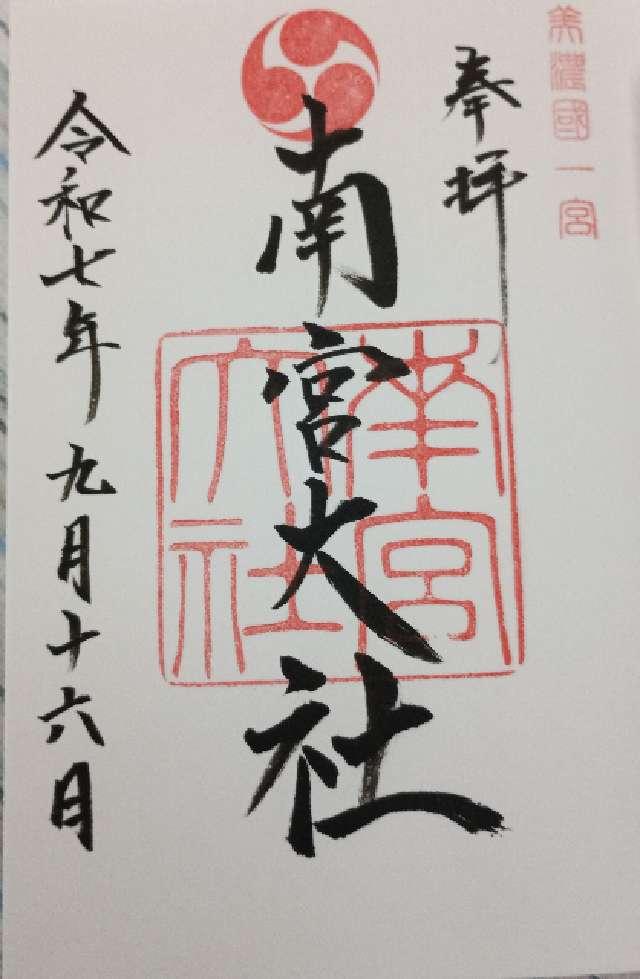 美濃國一宮
奉拝
南宮大社
南宮
大社
令和七年九月十六日